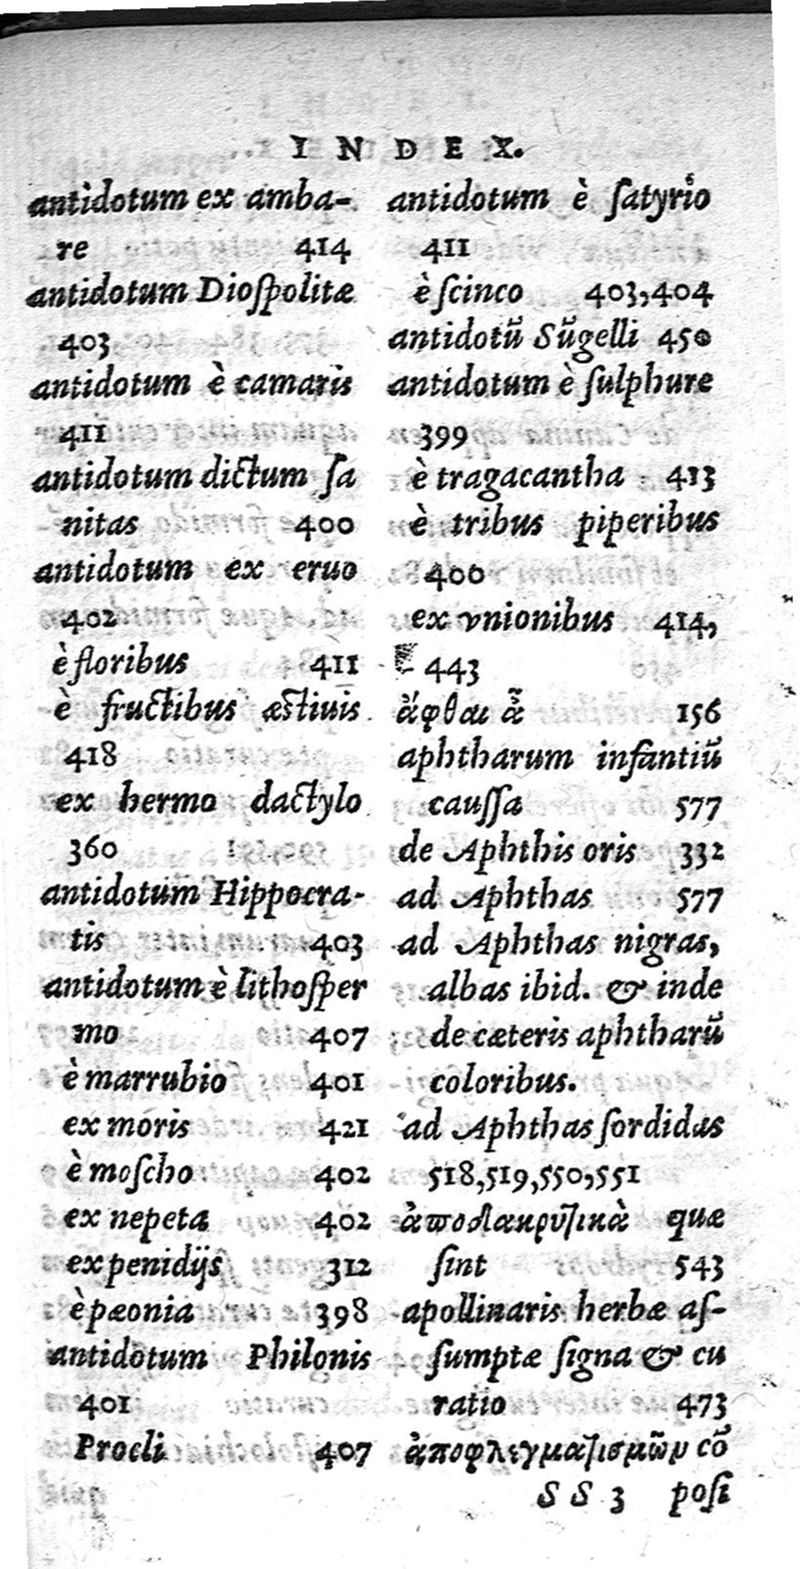 INDEX.
antidotum ex amba-
re 414
antidotum Dioſpolitæ
403
antidotum è camaris
411
antidotum dictum ſa
nitas 400
antidotum ex eruo
402
è floribus 411
è fructibus æstiuis
418
ex hermo dactylo
360
antidotum Hippocra-
tis 403
antidotum è lithoſper
mo 407
è marrubio 401
ex moris 421
è moſcho 402
ex nepeta 402
ex penidijs 312
è pæonia 398
antidotum Philonis
401
Procli 407
antidotum è ſatyrio
411
è ſcinco 403,404
antidotũ Sũgelli 450
antidotum è ſulphure
399
è tragacantha 413
è tribus piperibus
400
ex vnionibus 414,
443
ἄφθαι ἇ 156
aphtharum infantiũ
cauſſa 577
de Aphthis oris 332
ad Aphthas 577
ad Aphthas nigras,
albas ibid. & inde
de cæteris aphtharũ
coloribus.
ad Aphthas ſordidas
518,519,550,551
ἀποδακρυτικὰ quæ
ſint 543
apollinaris herbæ aſ-
ſumptæ ſigna & cu
ratio 473
ἀποφλεγματισμῶν cō
SS 3 poſi